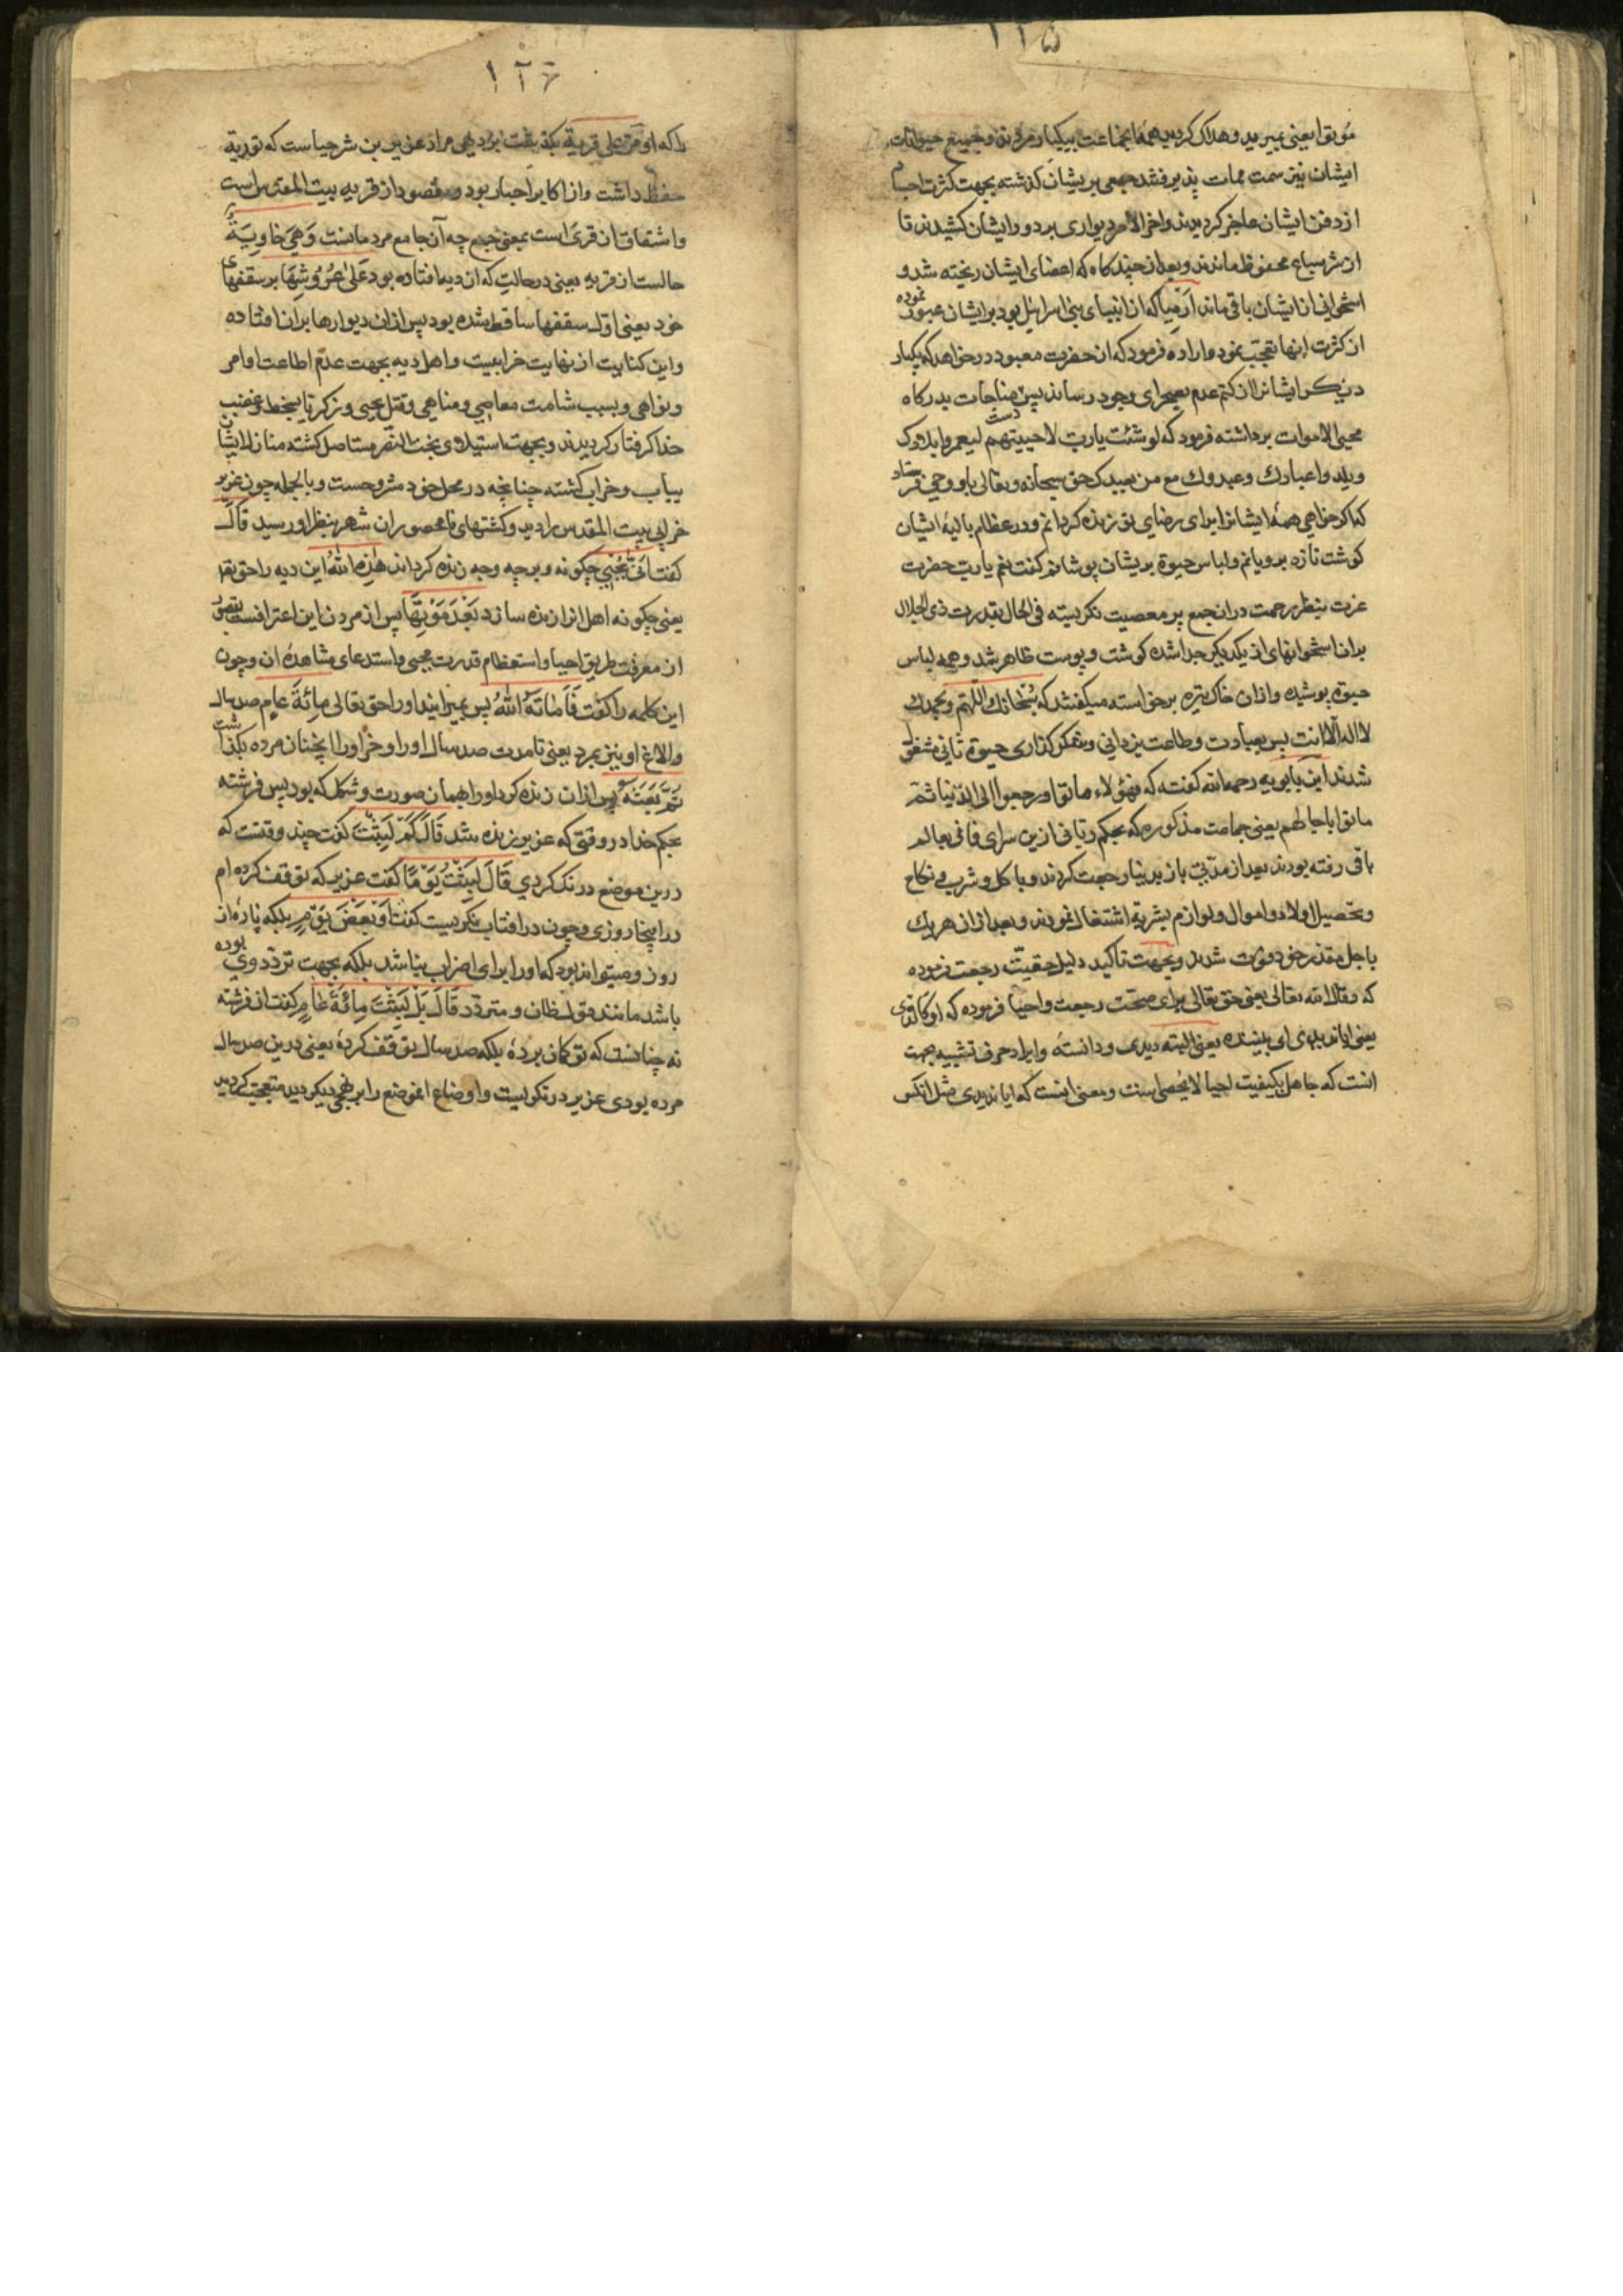 ۱۲۵
موتوا یعنی بمیرید وهلاک کردید همه انجماعت بیکبار مردند وجمیع حیوانات
ایشان نیز سمت ممات پذیرفتند جمعی بریشان کذشته بجهت کثرت اجسام
از دفن ایشان عاجز کردیدند واخر الامر دیواری بر دور ایشان کشیدند تا
از شر سباع محفوظ ماندند وبعد از چند کاه که اعضای ایشان ریخته شد و
استخوانی از ایشان باقی ماند ارمیا که از انبیای بنی اسرائیل بود بر ایشان عبور نموده
از کثرت انها تعجب نمود واراده فرمود که از حضرت معبود درخواهد که یکبار
دیکر ایشانرا از کتم عدم بصحرای وجود رساند پس دست مناجات بدرکاه
محیی الاموات برداشته فرمود که لو شئت یا رب لاحییتهم لیعمروا بلادک
ویلدوا عبادک وعبدوک مع من یعبدک حق سبحانه وتعالی باو وحی فرستاد
که اکر خواهی همۀ ایشانرا برای رضای تو زنده کردانم ودر عظام بالیۀ ایشان
کوشت تازه برویانم ولباس حیوة بریشان پوشانم کفت نعم یا رب حضرت
عزت بنظر رحمت در ان جمع پر معصیت نکریسته فی الحال بقدرت ذی الجلال
بران استخوانهای از یکدیکر جدا شده کوشت وپوست ظاهر شد وهمه لباس
حیوة پوشیده وازان خاک تیره برخواسته میکفتند که سبحانک اللهم وبحمدک
لا اله الا انت پس بعبادت وطاعت یزدانی وشکر کذاری حیوة ثانی مشغول
شدند ابن بابویه رحمه الله کفته که فهؤلاء ماتوا ورجعوا الی الدنیا ثم
ماتوا باجالهم یعنی جماعت مذکوره که بحکم ربانی ازین سرای فانی بعالم
باقی رفته بودند بعد از مدتی باز بدنیا رجعت کردند وباکل وشرب ونکاح
وتحصیل اولاد واموال ولوازم بشریة اشتغال نمودند وبعد ازان هریک
باجل مقدر خود فوت شدند وبجهت تاکید دلیل حقیت رجعت فرموده
که وقال الله تعالی یعنی حق تعالی برای صحت رجعت واحیا فرموده که او کالذی
یعنی ایا ندیدی ای بیننده یعنی البته دیدی ودانستۀ وایراد حرف تشبیه بجهت
انست که جاهل بکیفیت احیا لا یحصی است ومعنی اینست که ایا ندیدی مثل انکس
۱۲۶
را که او مر علی قریة بکذشت بر دهی مراد عزیر بن شرحیاست که توریة
حفظ داشت واز اکابر احبار بود ومقصود از قریه بیت المقدس است
واشتقاق ان قری است بمعنی جمع چه آن جامع مردمانست وَهِیَ خاوِیَةٌ
حالست از قریه یعنی در حالتی که ان دیه افتاده بود عَلی عُرُوشِها بر سقفهای
خود یعنی اول سقفها ساقط شده بود پس ازان دیوارها بران افتاده
واین کنایت از نهایت خرابیست واهل دیه بجهت عدم اطاعت اوامر
ونواهی وبسبب شامت معاصی ومناهی وقتل یحیی وزکریا بسخط وغضب
خدا کرفتار کردیدند وبجهت استیلای بخت النصر مستاصل کشته منازل ایشان
بیاب وخراب کشته چنانچه در محل خود مشروحست وبالجمله چون عزیر
خرابی بیت المقدس را دید وکشتهای نامحصور ان شهر بنظر او رسید قالَ
کفت اَنّی یُحْیِی چکونه وبر چه وجه زنده کرداند هذِهِ اللّهُ این دیه را حق تعالی
یعنی چکونه اهل انرا زنده سازد بَعْدَ مَوْتِها پس از مردن این اعترافست بقصور
از معرفت طریق احیا واستعظام قدرت محیی واستدعای مشاهدۀ ان وچون
این کلمه را کفت فَاَماتَهُ اللّهُ پس بمیرانید او را حق تعالی مِائَةَ عامٍ صد سال
والاغ او نیز بمرد یعنی تا مدت صد سال او را وخر او را انچنان مرده بکذاشت
ثُمَّ بَعَثَهُ پس ازان زنده کرد او را بهمان صورت وشکل که بود پس فرشته
بحکم خدا در وقتی که عزیر زنده شد قالَ کَمْ لَبِثْتَ کفت چند وقتست که
درین موضع درنک کردی قالَ لَبِثْتُ یَوْمًا کفت عزیر که توقف کرده ام
در اینجا روزی وچون در افتاب نکریست کفت اَوْ بَعْضَ یَوْمٍ بلکه پارۀ از
روز ومیتواند بود که او را برای اضراب نباشد بلکه بجهت تردد وی بوده
باشد مانند قول ظان ومتردد قالَ بَلْ لَبِثْتَ مِائَةَ عامٍ کفت ان فرشته
نه چنانست که تو کمان بردۀ بلکه صد سال توقف کردۀ یعنی درین صد سال
مرده بودی عزیر در نکریست واوضاع انموضع را بر نهجی دیکر دید متعجب کردید